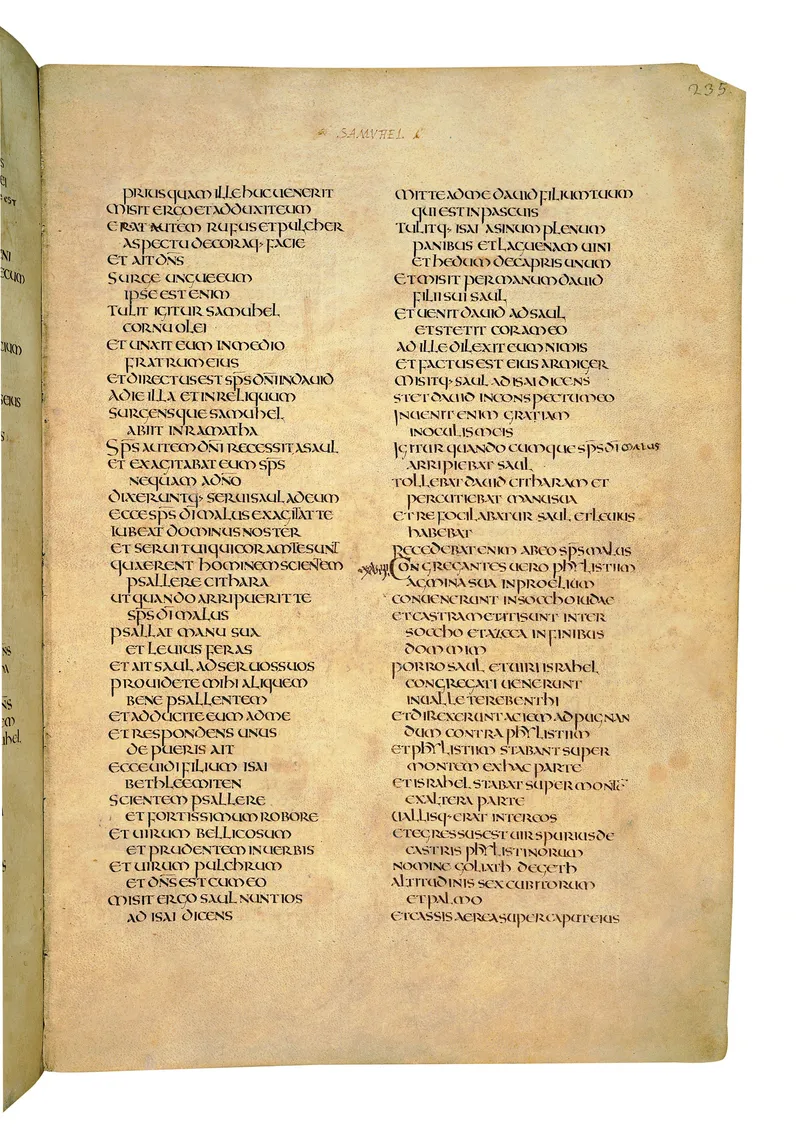 235
SAMUHEL
PRIUSQUAM ILLE HUC UENERIT
MISIT ERGO ET ADDUXIT EUM
ERAT AUTEM RUFUS ET PULCHER
ASPECTU DECORAQ· FACIE
ET AIT DN̄S
SURGE UNGUE EUM
IPSE EST ENIM
TULIT IGITUR SAMUHEL
CORNU OLEI
ET UNXIT EUM IN MEDIO
FRATRUM EIUS
ET DIRECTUS EST SP̄S DN̄I IN DAUID
A DIE ILLA ET IN RELIQUUM
SURGENSQUE SAMUHEL
ABIIT IN RAMATHA
SP̄S AUTEM DN̄I RECESSIT A SAUL
ET EXAGITABAT EUM SP̄S
NEQUAM A DN̄O
DIXERUNTQ· SERUI SAUL AD EUM
ECCE SP̄S DĪ MALUS EXAGITAT TE
IUBEAT DOMINUS NOSTER
ET SERUI TUI QUI CORAM TE SUNT
QUAERENT HOMINEM SCIENTEM
PSALLERE CITHARA
UT QUANDO ARRIPUERIT TE
SP̄S DĪ MALUS
PSALLAT MANU SUA
ET LEUIUS FERAS
ET AIT SAUL AD SERUOS SUOS
PROUIDETE MIHI ALIQUEM
BENE PSALLENTEM
ET ADDUCITE EUM AD ME
ET RESPONDENS UNUS
DE PUERIS AIT
ECCE UIDI FILIUM ISAI
BETHLEEMITEN
SCIENTEM PSALLERE
ET FORTISSIMUM ROBORE
ET UIRUM BELLICOSUM
ET PRUDENTEM IN UERBIS
ET UIRUM PULCHRUM
ET DN̄S EST CUM EO
MISIT ERGO SAUL NUNTIOS
AD ISAI DICENS
MITTE AD ME DAUID FILIUM TUUM
QUI EST IN PASCUIS
TULITQ· ISAI ASINUM PLENUM
PANIBUS ET LAGUENAM UINI
ET HEDUM DE CAPRIS UNUM
ET MISIT PER MANUM DAUID
FILII SUI SAUL
ET UENIT DAUID AD SAUL
ET STETIT CORAM EO
AD ILLE DILEXIT EUM NIMIS
ET FACTUS EST EIUS ARMIGER
MISITQ· SAUL AD ISAI DICENS
STET DAUID IN CONSPECTU MEO
INUENIT ENIM GRATIAM
IN OCULIS MEIS
IGITUR QUANDOCUMQUE SP̄S DĪ MALUS
ARRIPIEBAT SAUL
TOLLEBAT DAUID CITHARAM ET
PERCUTIEBAT MANU SUA
ET REFOCILABATUR SAUL ET LEUIUS
HABEBAT
RECEDEBAT ENIM AB EO SP̄S MALUS
CONGREGANTES UERO PHILISTIIM
AGMINA SUA IN PROELIUM
CONUENERUNT IN SOCCHO IUDAE
ET CASTRAMETATI SUNT INTER
SOCCHO ET AZECA IN FINIBUS
DOMMIM
PORRO SAUL ET UIRI ISRAHEL
CONGREGATI UENERUNT
IN UALLE TEREBENTHI
ET DIREXERUNT ACIEM AD PUGNAN
DUM CONTRA PHILISTIIM
ET PHILISTIIM STABANT SUPER
MONTEM EX HAC PARTE
ET ISRAHEL STABAT SUPER MONTE
EX ALTERA PARTE
UALLISQ· ERAT INTER EOS
ET EGRESSUS EST UIR SPURIUS DE
CASTRIS PHILISTINORUM
NOMINE GOLIATH DE GETH
ALTITUDINIS SEX CUBITORUM
ET PALMO
ET CASSIS AEREA SUPER CAPUT EIUS